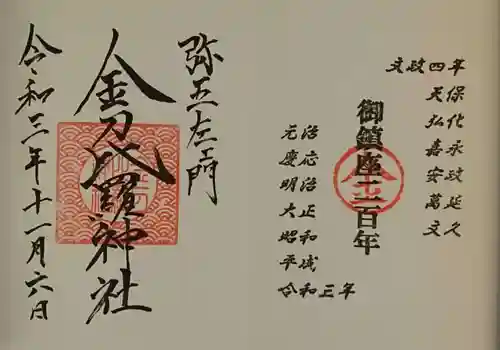 文政四年
天保
弘化
嘉永
安政
萬延
文久
御鎮座二百年
金
元治
慶応
明治
大正
昭和
平成
令和三年
弥五左エ門
金刀比羅神社
令和三年十一月六日